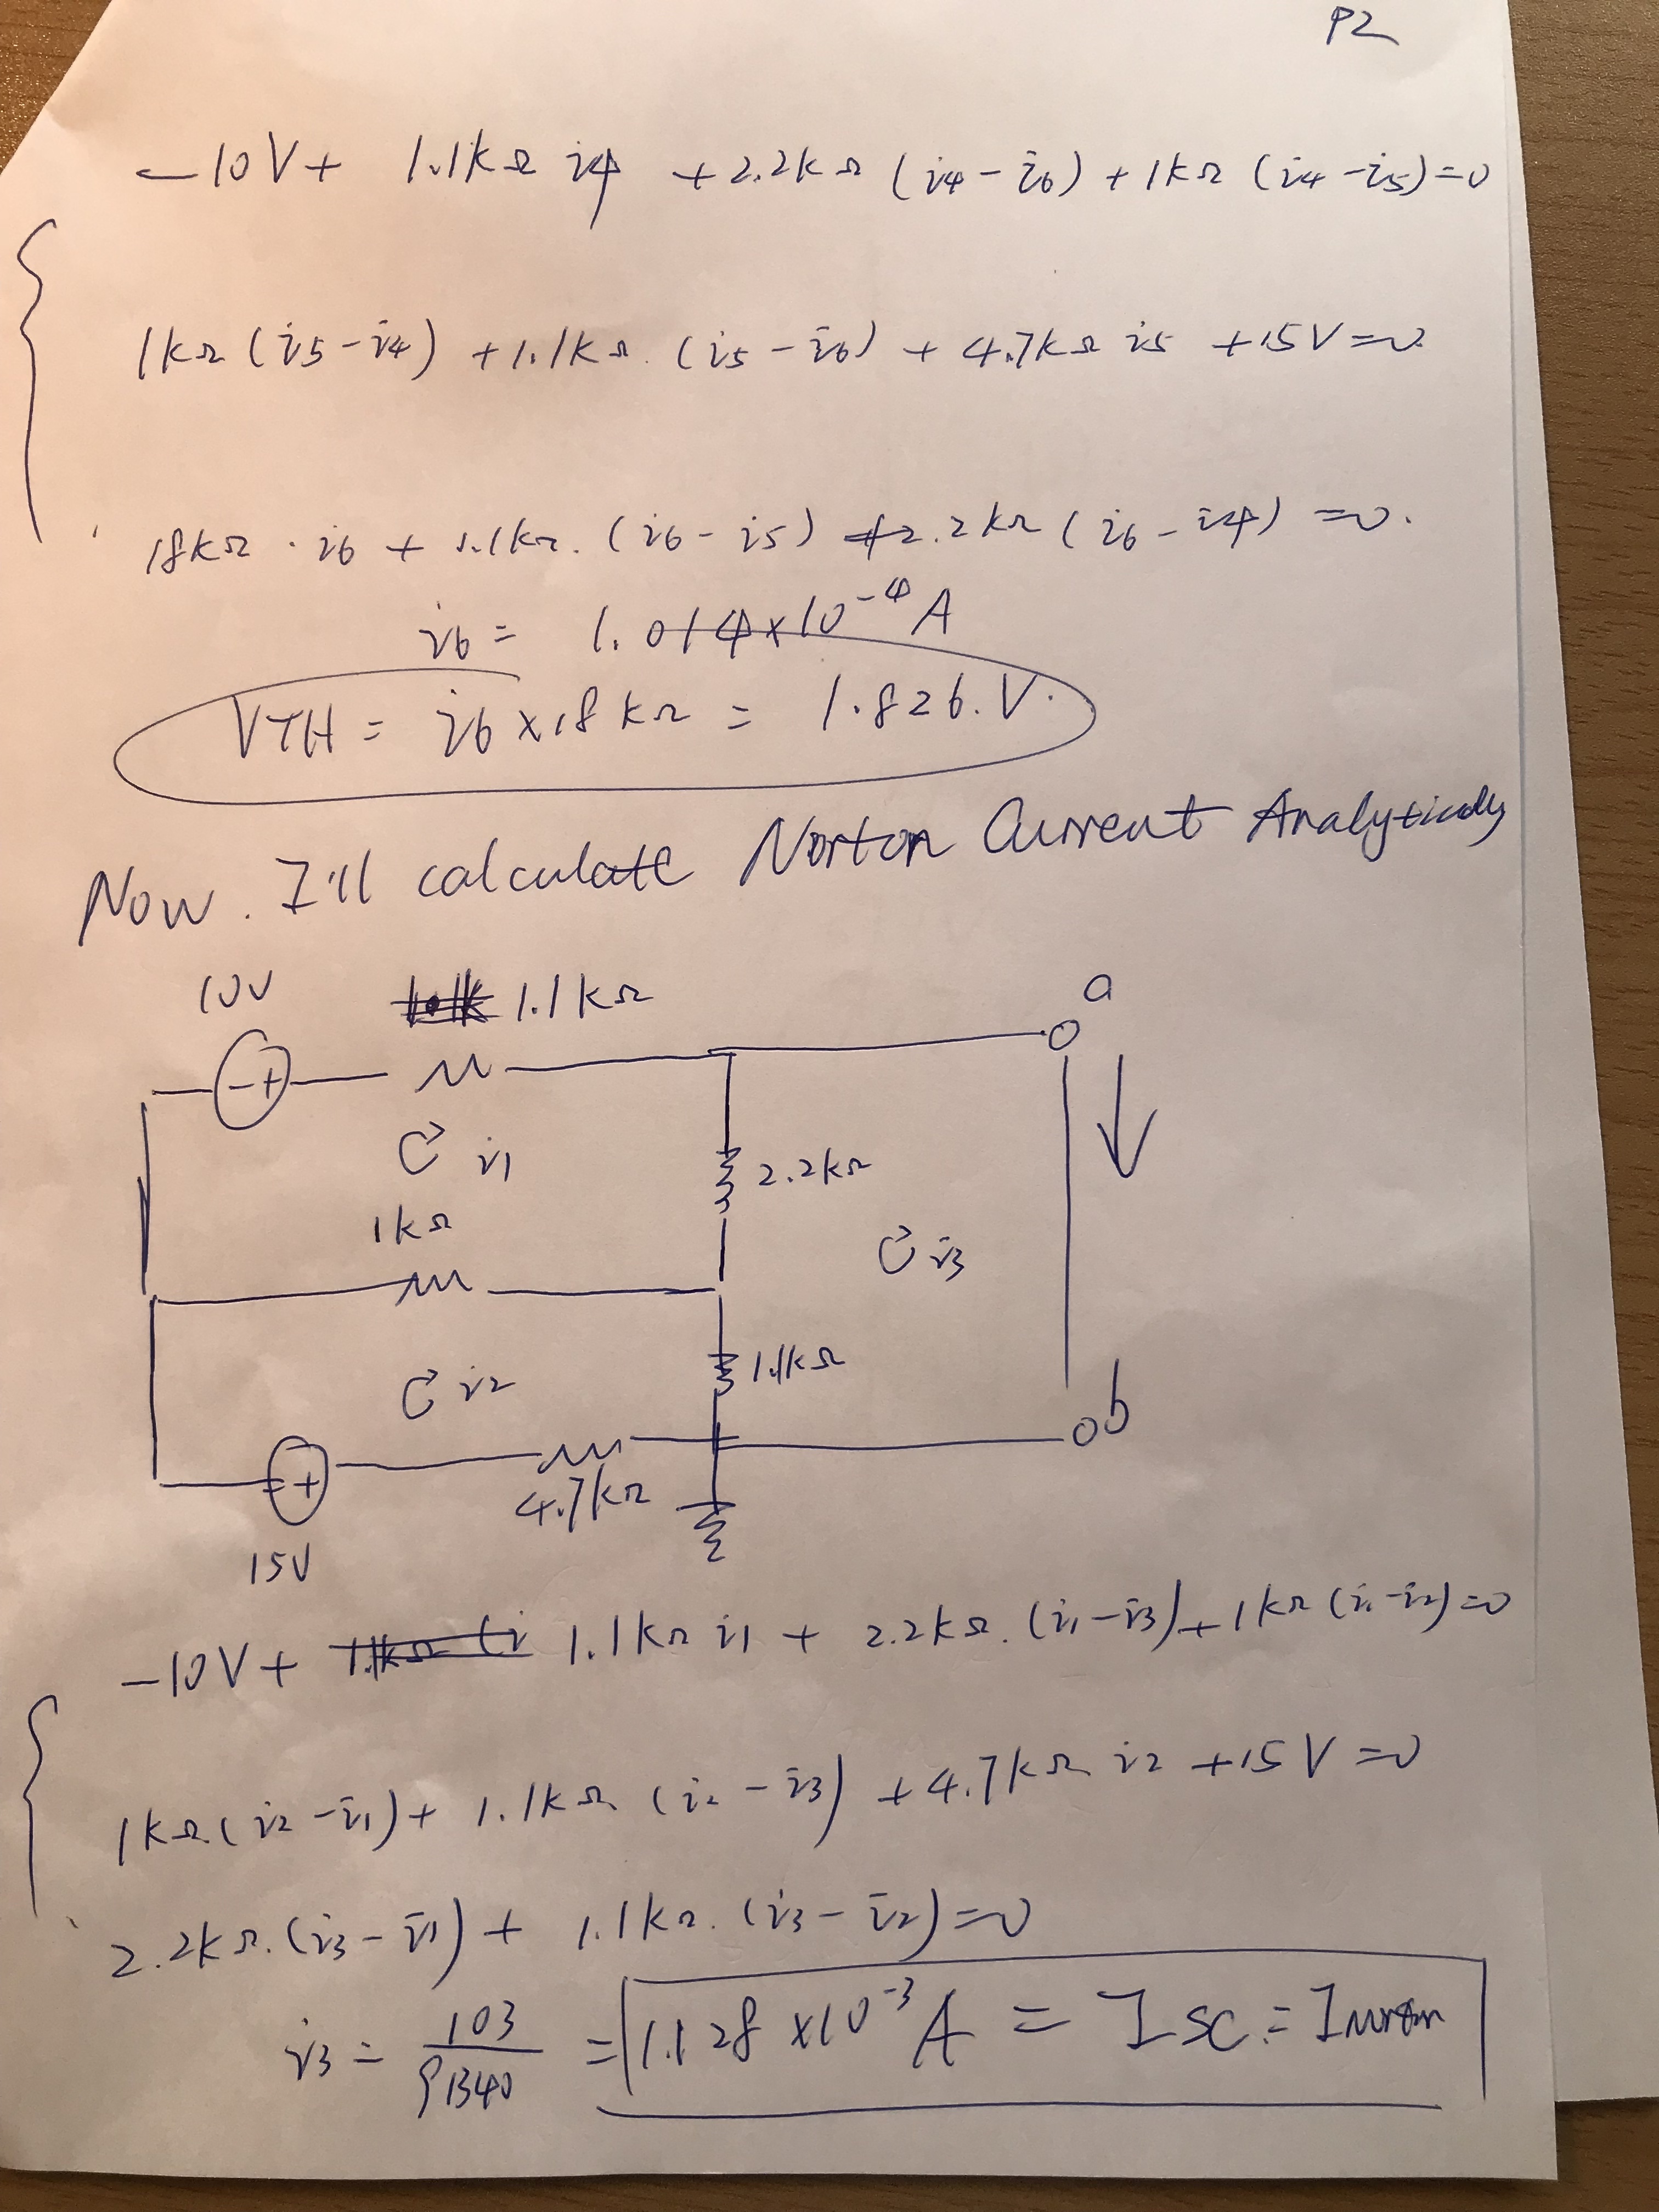 P2
-10V + 1.1kΩ i4 + 2.2kΩ (i4 - i6) + 1kΩ (i4 - i5) = 0
1kΩ (i5 - i4) + 1.1kΩ. (i5 - i6) + 4.7kΩ i5 + 15V = 0.
18kΩ · i6 + 1.1kΩ. (i6 - i5) + 2.2kΩ (i6 - i4) = 0.
i6 = 1.014 × 10⁻⁴ A
VTH = i6 × 18kΩ = 1.826.V.
Now. I'll calculate Norton Current Analytically
10V
1.1kΩ
a
- +
i1
2.2kΩ
1kΩ
i3
1.1kΩ
i2
b
- +
4.7kΩ
15V
-10V + 1.1kΩ i1 + 2.2kΩ. (i1 - i3) + 1kΩ (i1 - i2) = 0
1kΩ. (i2 - i1) + 1.1kΩ. (i2 - i3) + 4.7kΩ i2 + 15V = 0
2.2kΩ. (i3 - i1) + 1.1kΩ. (i3 - i2) = 0
i3 = 103/91340 = 1.128 × 10⁻³ A = Isc = Inorton